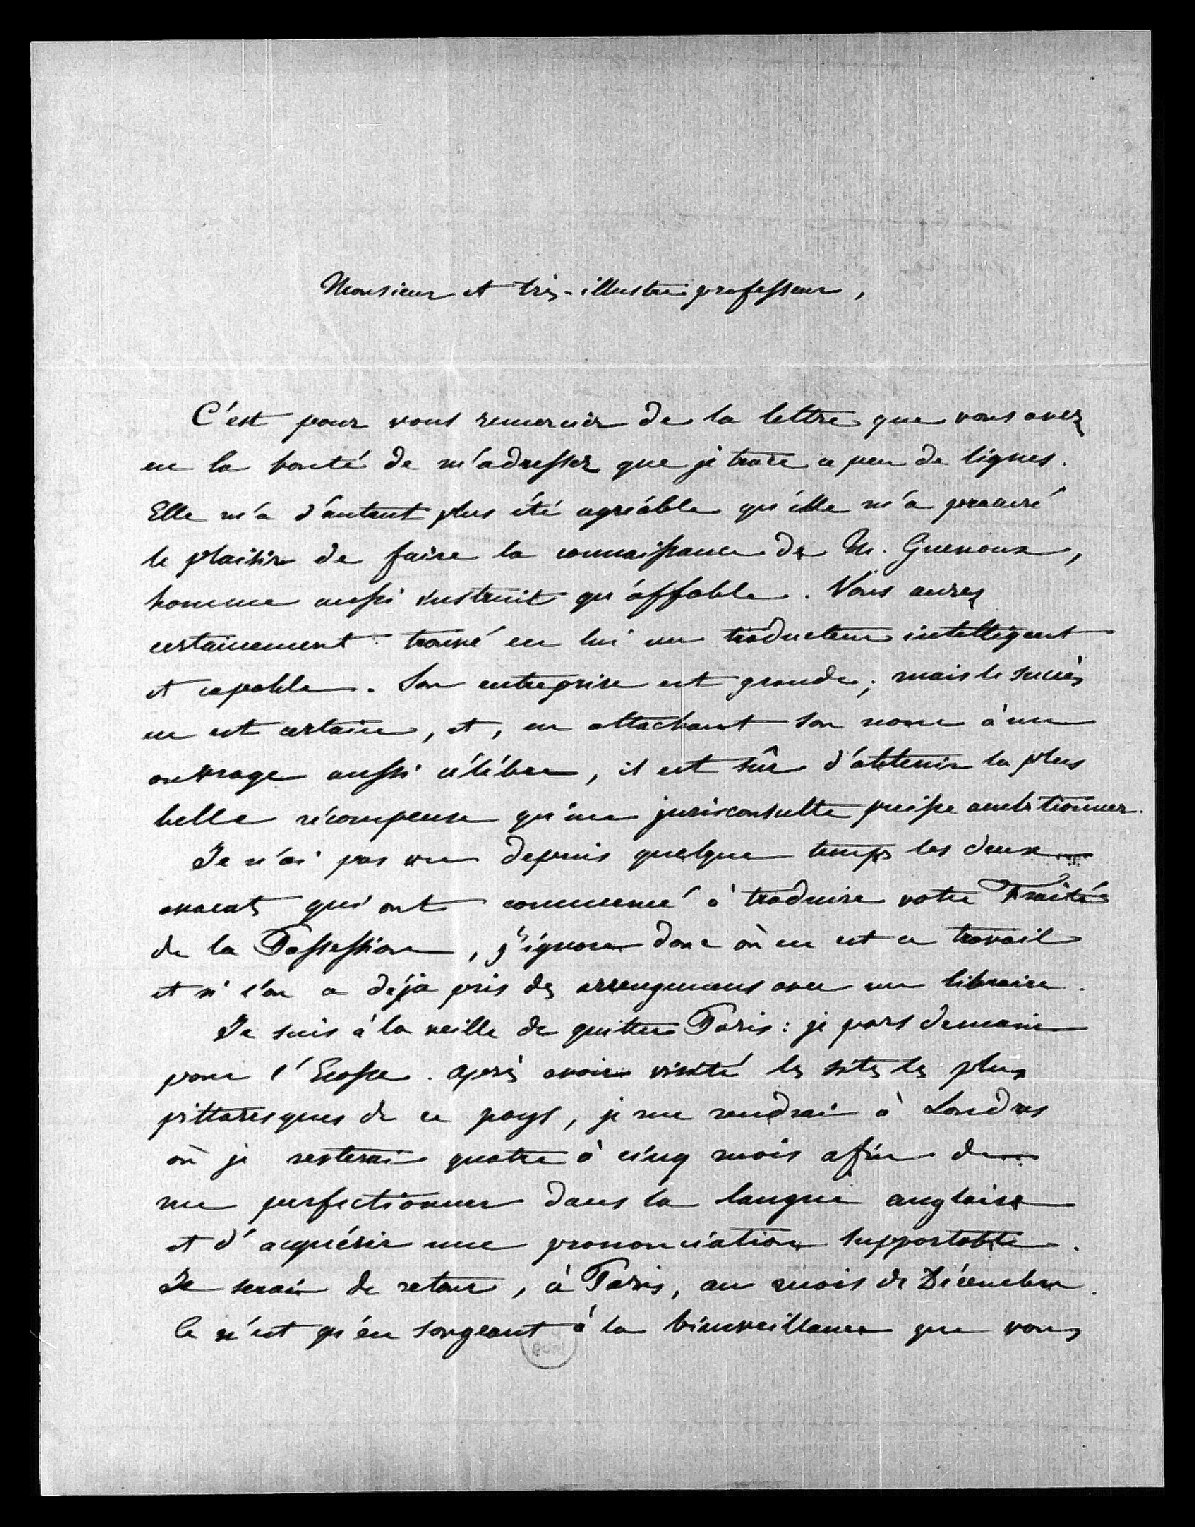 Monsieur et très-illustre professeur,
C'est pour vous remercier de la lettre que vous avez
eu la bonté de m'adresser que je trace ce peu de lignes.
Elle m'a d'autant plus été agréable qu'elle m'a procuré
le plaisir de faire la connaissance de M. Guenoux,
homme aussi instruit qu'affable. Vous aurez
certainement trouvé en lui un traducteur intelligent
et capable. Son entreprise est grande; mais le succès
en est certain, et, en attachant son nom à un
ouvrage aussi célèbre, il est sûr d'obtenir la plus
belle récompense qu'un jurisconsulte puisse ambitionner.
Je n'ai pas vu depuis quelque temps les deux
avocats qui ont commencé à traduire votre Traité
de la Possession, j'ignore donc où en est ce travail
et si l'on a déjà pris des arrangemens avec un libraire.
Je suis à la veille de quitter Paris: je pars demain
pour l'Ecosse. après avoir visité les sites les plus
pittoresques de ce pays, je me rendrai à Londres
où je resterai quatre à cinq mois afin de
me perfectionner dans la langue anglaise
et d'acquérir une prononciation supportable.
Je serai de retour, à Paris, au mois de Décembre.
Ce n'est qu'en songeant à la bienveillance que vous